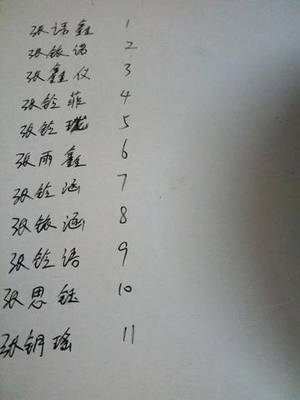 张诗鑫 1
张铱诺 2
张鑫仪 3
张铃菲 4
张铃珑 5
张雨鑫 6
张铃涵 7
张铱涵 8
张铃语 9
张思钰 10
张钥瑶 11